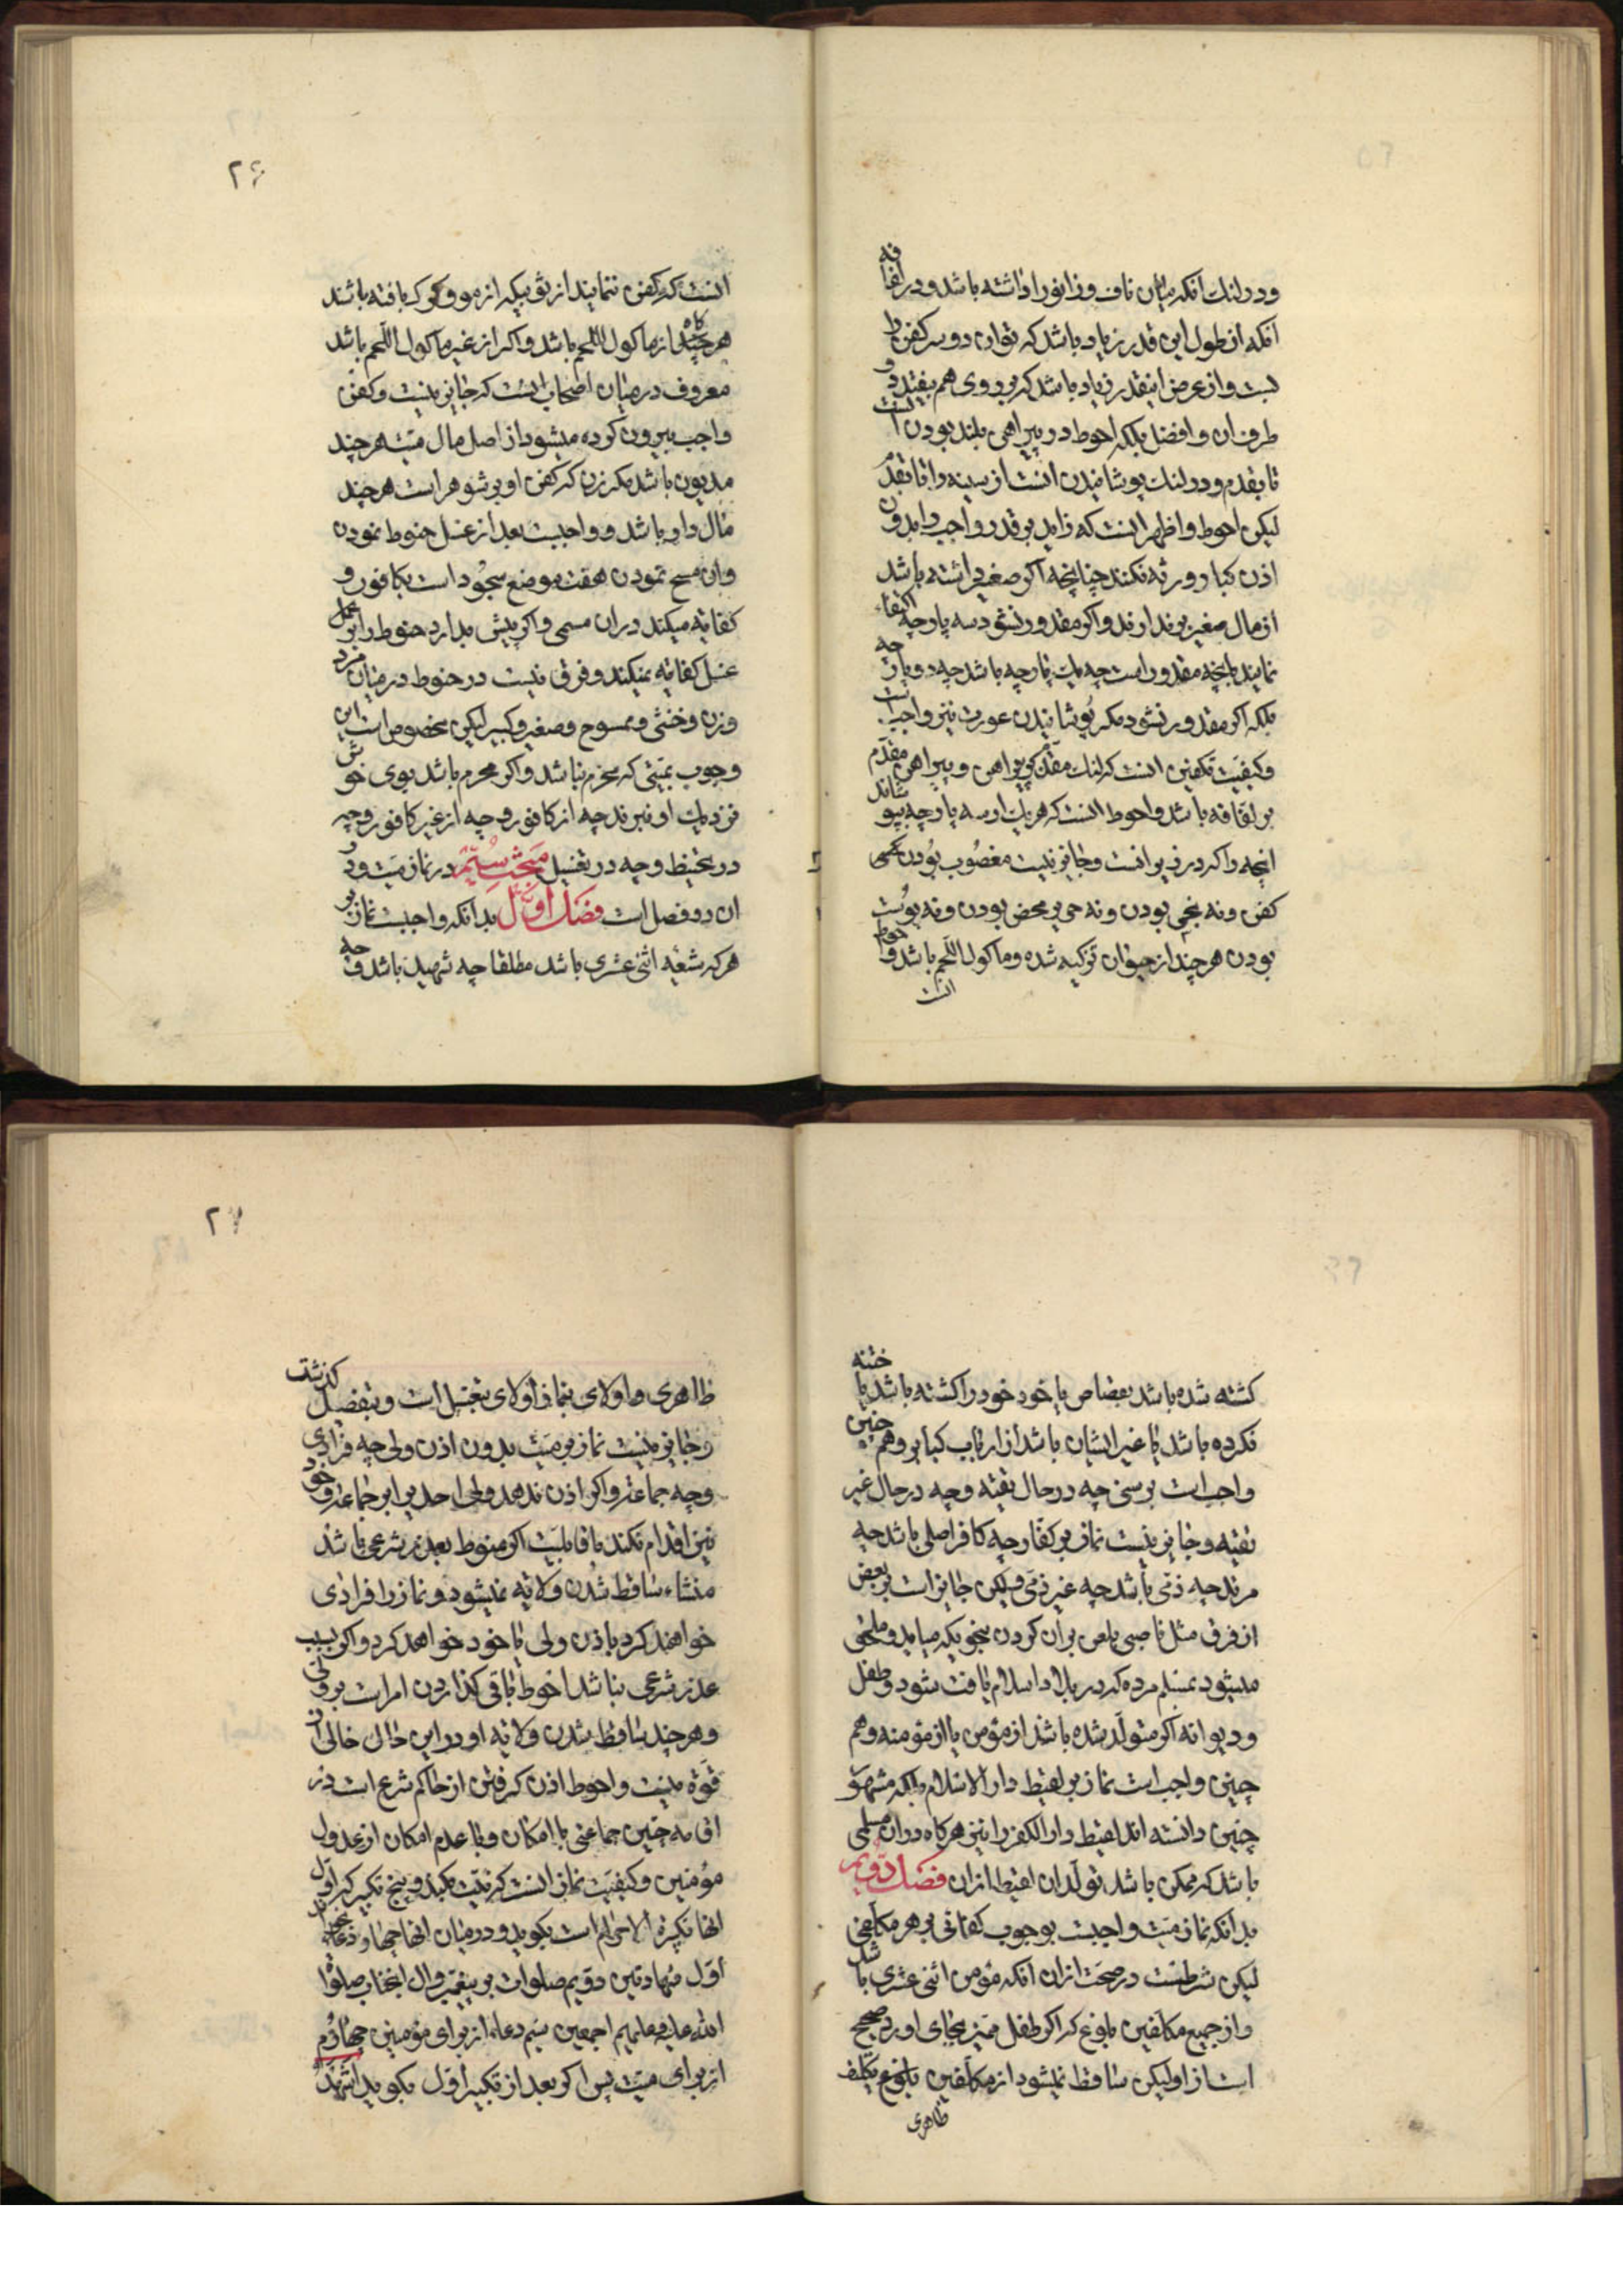 ودر لنك آنكه ميان ناف وزانو را داشته باشد ودر لفافه
آنكه از طول اين قدر زياد باشد كه توان دو سر كفن را
بست واز عرض اينقدر زياد باشد كه بر روى هم بيفتد دو
طرف ان وافضل بلكه احوط در پيراهن بلند بودن است
تا بقدم ودر لنك پوشانيدن انست از سينه تا بقدم
ليكن احوط واظهر انست كه زايد بر قدر واجب را بدون
اذن كبار ورثه نكنند چنانچه اكر صغير داشته باشد
از مال صغير بر ندارند واكر مقدور نشود سه پارچه اكتفاء
نمايند بانچه مقدور است چه يك پارچه باشد چه دو پارچه
بلكه اكر مقدور نشود مكر پوشانيدن عورت نيز واجب است
وكيفيت تكفين انست كه لنك مقدم بر پيراهن وپيراهن مقدم
بر لفافه باشد واحوط انست كه هر يك از سه پارچه بپوشاند
انچه را كه در زير اوست وجايز نيست مغصوب بودن
كفن ونه نجس بودن ونه حرير محض بودن ونه پوست
بودن هر چند از حيوان تزكيه شده وماكول اللحم باشد واحوط
انست
۲۶
انست كه كفن ننمايند از ثوبيكه از مو وكرك بافته باشند
هر چند كه از ماكول اللحم باشد واكر از غير ماكول اللحم باشد
معروف در ميان اصحاب انست كه جايز نيست وكفن
واجب بيرون كرده ميشود از اصل مال ميت هر چند
مديون باشد مكر زن كه كفن او بر شوهر است هر چند
مال دار باشد وواجبست بعد از غسل حنوط نمودن
وان مسح نمودن هفت موضع سجود است بكافور و
كفايه ميكند در ان مسمى واكر پيش بدارد حنوط را بر عمل
غسل كفايه نميكند وفرق نيست در حنوط در ميان مرد
وزن وخنثى وممسوح وصغير وكبير ليكن مخصوص است اين
وجوب بميتى كه محرم نباشد واكر محرم باشد بوى خوش
نزديك او نبرند چه از كافور وچه از غير كافور وچه
در تحنيط وچه در تغسيل مبحث سيم در نماز ميت ودر
ان دو فصل است فصل اول بدانكه واجبست نماز بر
هر كه شيعه اثنى عشرى باشد مطلقا چه شهيد باشد وچه
كشته شده باشد بقصاص يا خود خود را كشته باشد يا ختنه
نكرده باشد يا غير ايشان باشد از ارباب كباير وهم چنين
واجب است بر سنى چه در حال تقيه وچه در حال غير
تقيه وجايز نيست نماز بر كفار چه كافر اصلى باشد چه
مرتد چه ذمى باشد چه غير ذمى وليكن جايز است بر بعض
از فرق مثل ناصبى بلعن بر ان كردن بنحويكه ميايد وملحق
ميشود بمسلم مرده كه در بلاد اسلام يافت شود وطفل
وديوانه اكر متولد شده باشد از مؤمن يا از مؤمنه وهم
چنين واجب است نماز بر لقيط دار الاسلام بلكه مشهور
چنين دانسته اند لقيط دار الكفر را نيز هر كاه در ان مسلمى
باشد كه ممكن باشد تولد ان لقيط از ان فصل دويم
بدانكه نماز ميت واجبست بوجوب كفائى بر هر مكلفى
ليكن شرطست در صحت از ان آنكه مؤمن اثنى عشرى باشد
واز جميع مكلفين بلوغ كه اكر طفل مميز بجاى اورد صحيح
است از او ليكن ساقط نميشود از مكلفين بلوغ تكليف
ظاهرى
۲۷
ظاهرى واولاى بنماز اولاى بغسل است وبتفصيل گذشت
وجايز نيست نماز بر ميت بدون اذن ولى چه فرادى
وچه جماعة واكر اذن ندهد ولى احدى را بر جماعة وخود
نيز اقدام نكند با قابليت اكر منوط بعذر شرعى باشد
منشاء ساقط شدن ولايه نميشود ونماز را فرادى
خواهند كرد باذن ولى يا خود خواهد كرد واكر بسبب
عذر شرعى نباشد احوط باقى كذاردن امر است بر ولى
وهر چند ساقط شدن ولايه او در اين حال خالى از
قوة نيست واحوط اذن كرفتن از حاكم شرع است در
اقامه چنين جماعتى با امكان وبا عدم امكان از عدول
مؤمنين وكيفيت نماز انست كه نيت بكند وپنج تكبير كه اول
انها تكبيرة الاحرام است بكويد ودر ميان انها چهار دعاء بخواند
اول شهادتين دويم صلوات بر پيغمبر وال انجناب صلوات
الله عليه وعليهم اجمعين سيم دعاء از براى مؤمنين چهارم
از براى ميت پس اكر بعد از تكبير اول بكويد اشهد